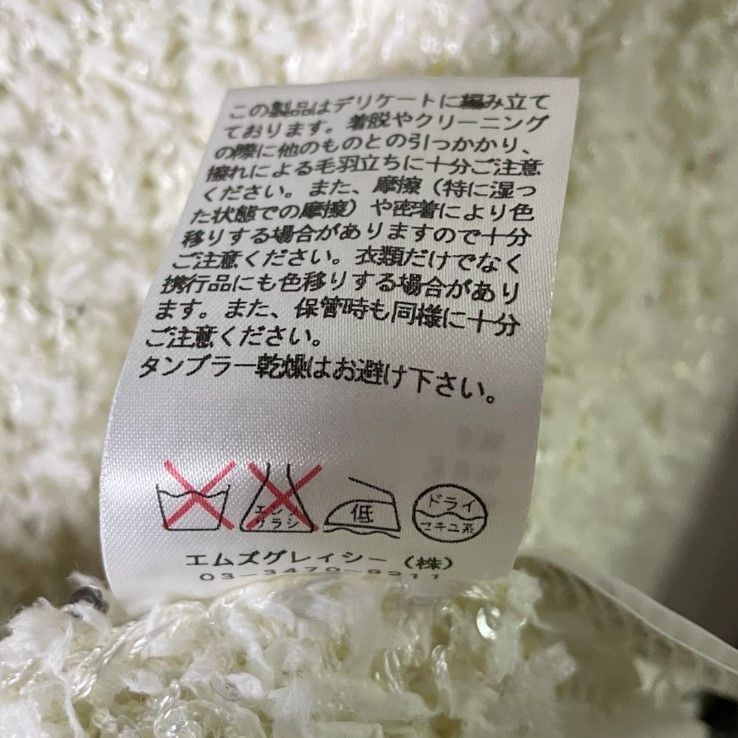 この製品はデリケートに編み立て
ております。着脱やクリーニング
の際に他のものとの引っかかり、
擦れによる毛羽立ちに十分ご注意
ください。また、摩擦（特に湿っ
た状態での摩擦）や密着により色
移りする場合がありますので十分
ご注意ください。衣類だけでなく
携行品にも色移りする場合があり
ます。また、保管時も同様に十分
ご注意ください。
タンブラー乾燥はお避け下さい。
エンソ
サラシ
低
ドライ
セキユ系
エムズグレイシー（株）
03-3470-9211